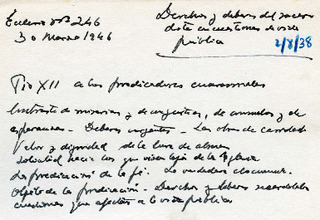 Ecclesia nº 246
30 Marzo 1946
Derechos y deberes del sacer
dote en cuestiones de vida
pública
2/8/38
Pio XII a los predicadores cuaresmales
Contraste de miserias y de angustias, de anuelos y de
esperanzas. - Deberes urgentes - Las obras de caridad
Valor y dignidad de la cura de almas
Solicitud hacia los que viven lejos de la Iglesia
La predicación de la fé. La verdadera elocuencia.
Objeto de la predicación. - Derechos y deberes
cuestiones que afectan a la vida pública